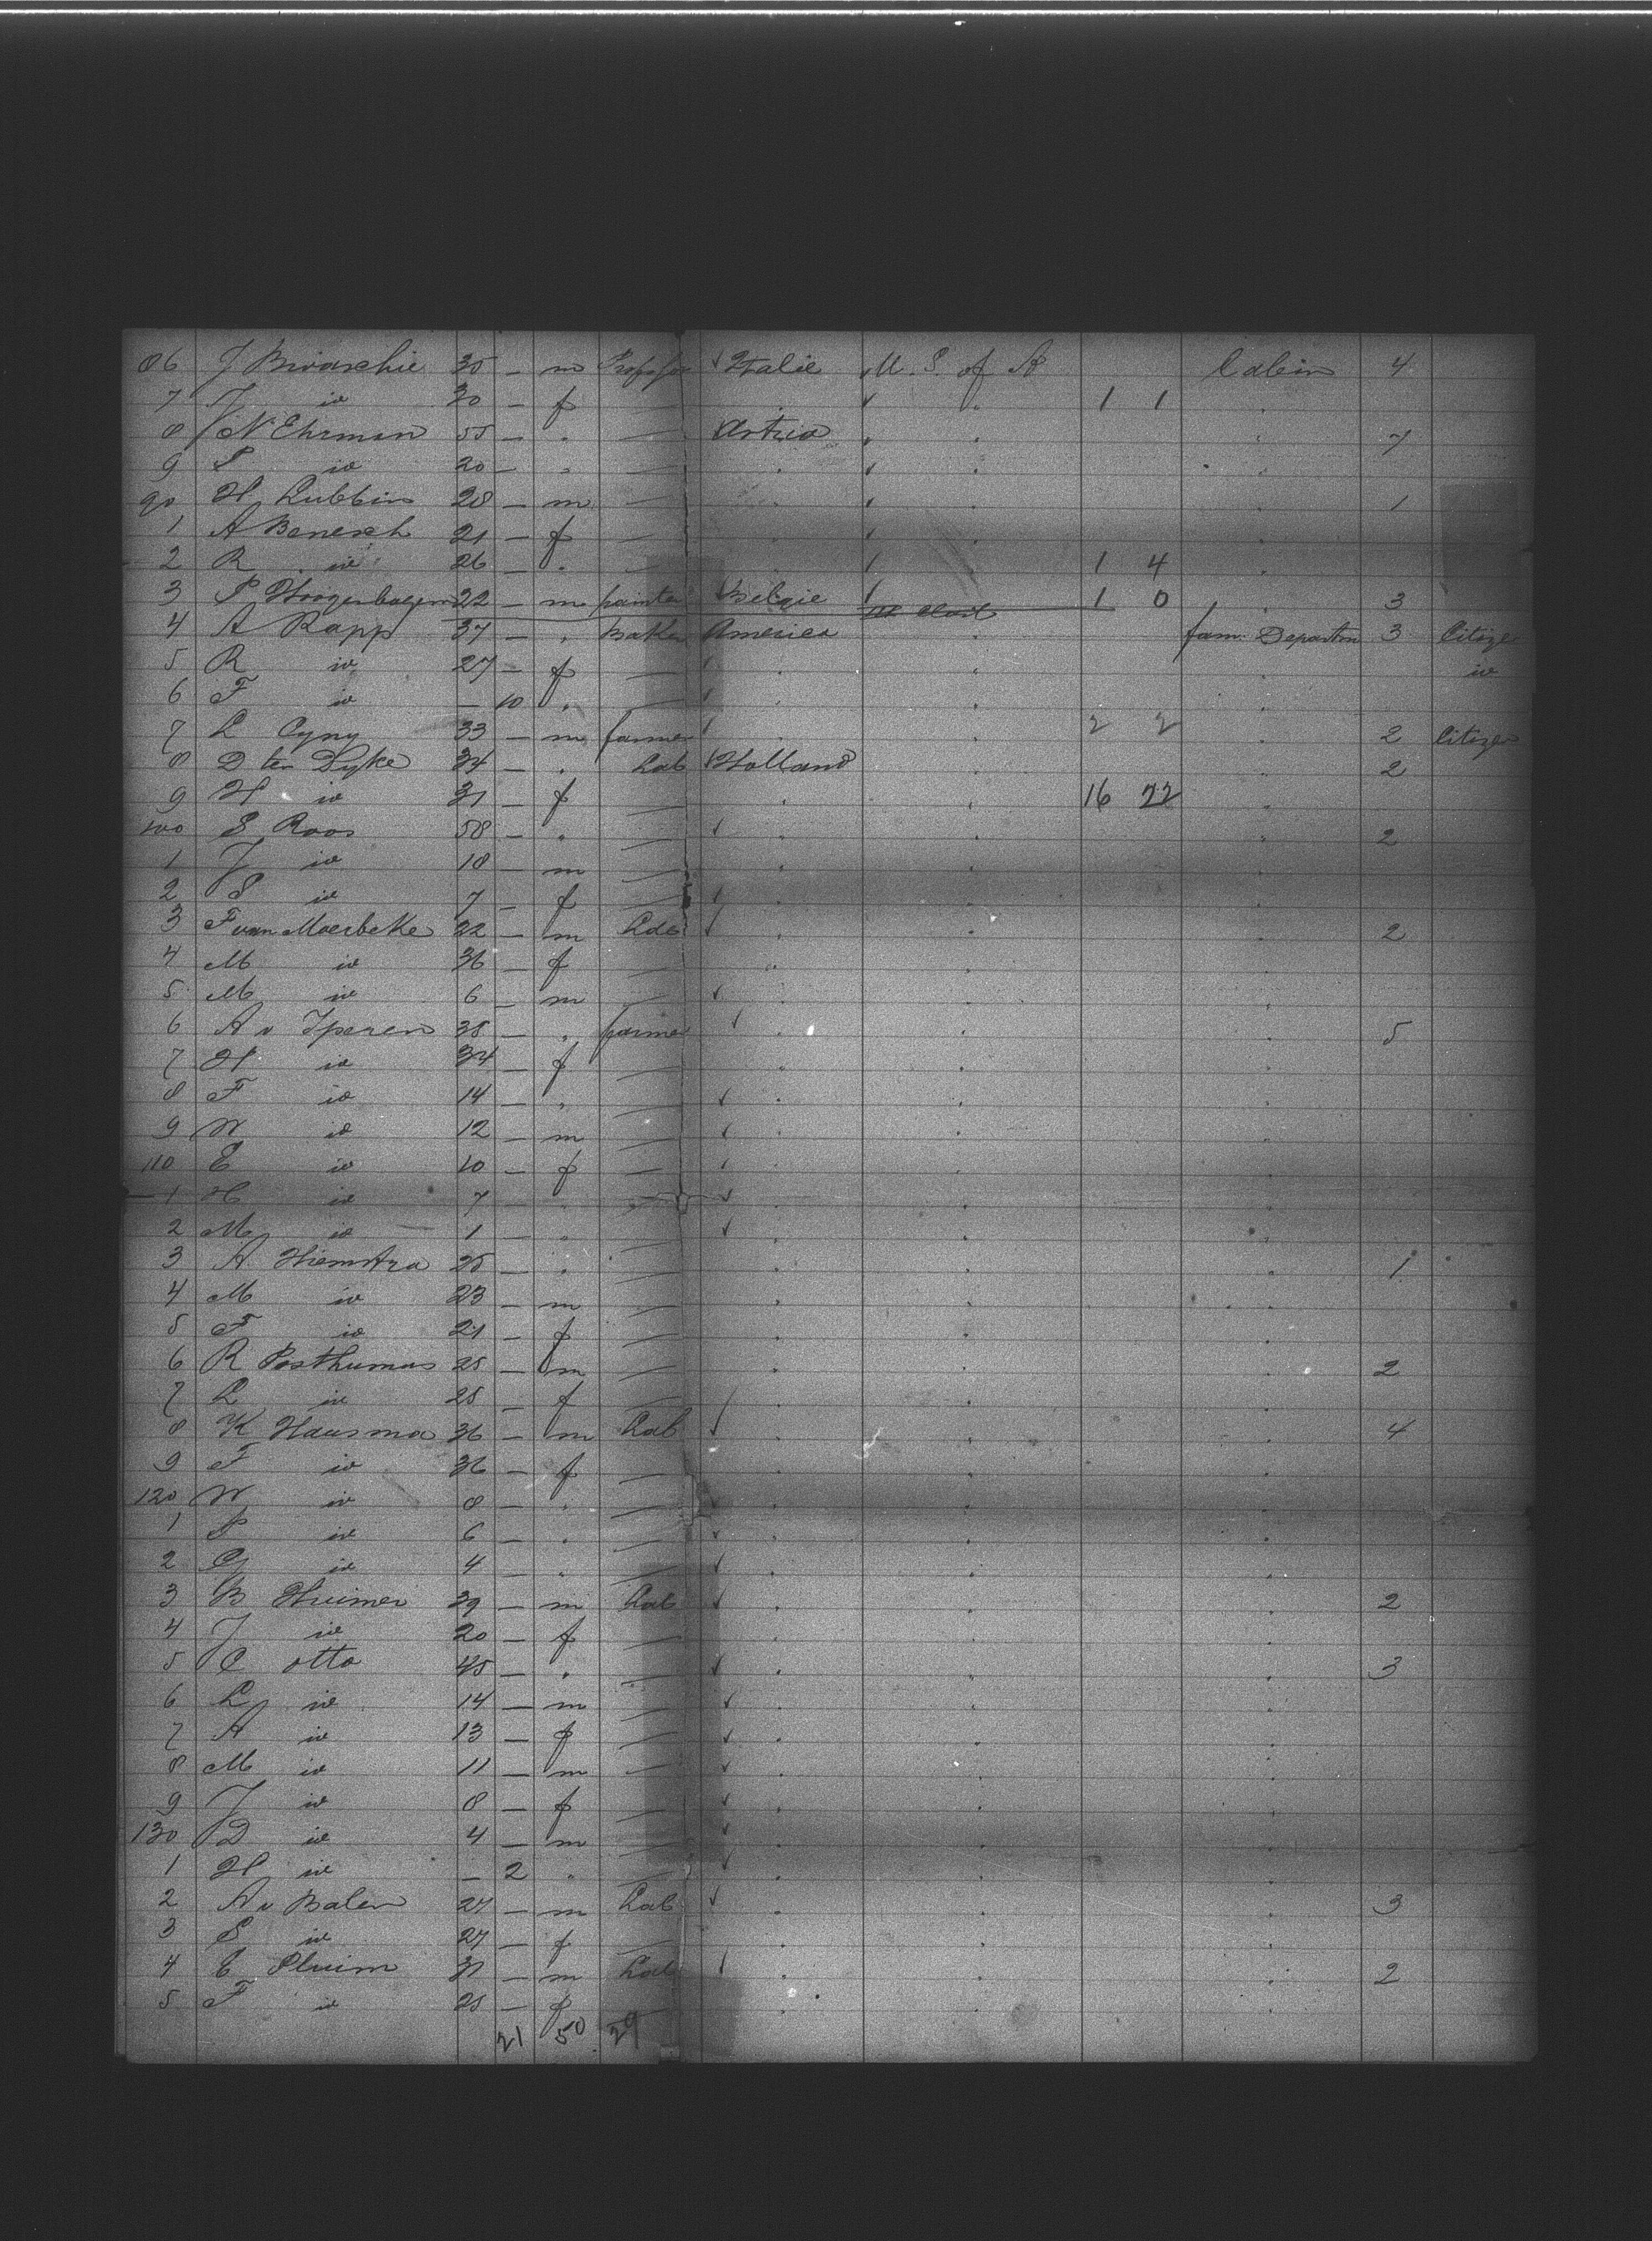 86 J Brioschie 35 — m Professor Italie U. S. of A Cabin 4
7 J id 30 — f — 1 1
8 N Ehrman 55 — " — Astria " 7
9 S id 20 — " —
90 H Lubbin 28 — m — 1
1 A Benesch 21 — f —
2 R id 26 — " 1 4
3 P Hoogenboezem 22 — m painter Belgie 1 0 3
4 A Rapp 37 — " Baker America fam: Departm 3 Citizen
5 R id 27 — f — id
6 F id — 10 "
7 L Cyny 33 — m farmer 2 2 2 Citizen
8 D ten Dyke 34 — " Lab Holland 2
9 H id 31 — f 16 22
100 S Roos 58 — " — 2
1 J id 18 — m —
2 S id 7 — f —
3 F van Moerbeke 22 — m Lab 2
4 M id 36 — f —
5 M id 6 — m —
6 A v Iperen 38 — " farmer 5
7 H id 34 — f —
8 F id 14 — " —
9 W id 12 — m —
110 E id 10 — f —
1 H id 7 — " —
2 M id 1 — " —
3 A Hiemstra 25 — " — 1
4 M id 23 — m —
5 F id 21 — f —
6 R Posthumus 25 — m — 2
7 L id 25 — f —
8 K Haasma 36 — m Lab 4
9 F id 36 — f —
120 W id 8 — " —
1 P id 6 — " —
2 G id 4 — " —
3 B Huimer 29 — m Lab 2
4 J id 20 — f —
5 C otto 45 — " — 3
6 L id 14 — m —
7 A id 13 — f —
8 M id 11 — m —
9 J id 8 — f —
130 D id 4 — m —
1 H id — 2 " —
2 A v Balen 27 — m Lab 3
3 S id 27 — f —
4 E Pluim 31 — m Lab 2
5 F id 25 — f —
21 50 29